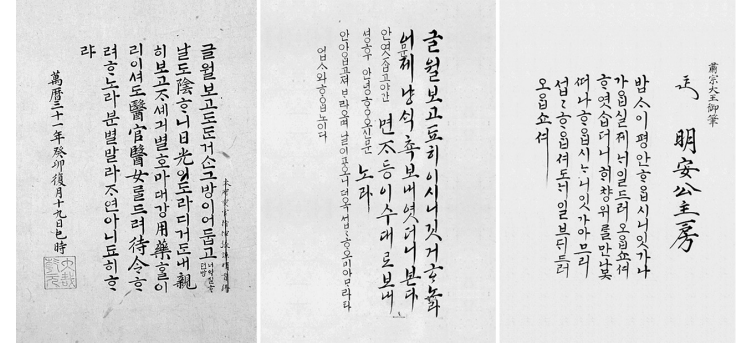 글월보고도돋던거ᄉᆞᆫ그방이어둡고
너역질ᄒᆞ던방
날도陰ᄒᆞ니日光이도라디거ᄃᆞᆫ내親
히보고ᄌᆞ셰긔별호마대강用藥ᄒᆞᆯ이
리이셔도醫官醫女ᄅᆞᆯ드려待令ᄒᆞ
려ᄒᆞ노라분별말라ᄌᆞ연아니됴히ᄒᆞ
랴
萬曆三十一年癸卯復月十九日巳時
글월보고됴히이시니깃거ᄒᆞ노라
어제냥ᄉᆡᆨ촉보내엿더니본다
면ᄌᆞ등이수대로보내
노라
신문
안엿ᄌᆞᆸ고야간
셩후안녕ᄒᆞ오신문
안아ᄋᆞᆸ고져ᄇᆞ라오며날이포오니더옥섭섭ᄒᆞ오미아ᄆᆞ라타
업ᄉᆞ와ᄒᆞᄋᆞᆸ노이다
肅宗大王御筆
明安公主房
밤ᄉᆞ이평안ᄒᆞ옵시니잇가나
가옵실제ᄂᆡ일드러오옵쇼셔
ᄒᆞ엿ᄉᆞᆸ더니ᄒᆡ챵위ᄅᆞᆯ만나못
떠나ᄒᆞ옵시ᄂᆞ니잇가아ᄆᆞ리
섭섭ᄒᆞ옵셔도ᄂᆡ일브ᄃᆡ드러
오옵쇼셔